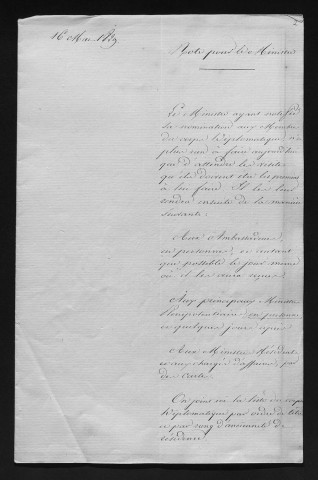 16 Mai 1839.
Note pour le Ministre
Le Ministre ayant notifié
sa nomination aux Membres
du corps diplomatique n'a
plus rien à faire aujourd'hui
que d'attendre les visites
qu'ils doivent être les premiers
à lui faire. Il les leur
rendra ensuite de la manière
suivante:
Aux Ambassadeurs,
en personne, et autant
que possible le jour même
où il les aura reçus.
Aux principaux Ministres
Plénipotentiaires, en personne,
et quelques jours après
Aux Ministres Résidents
et aux chargés d'affaires, par
des Cartes.
On joint ici la liste du corps
diplomatique par ordre de titres
et par rang d'ancienneté de
résidence.